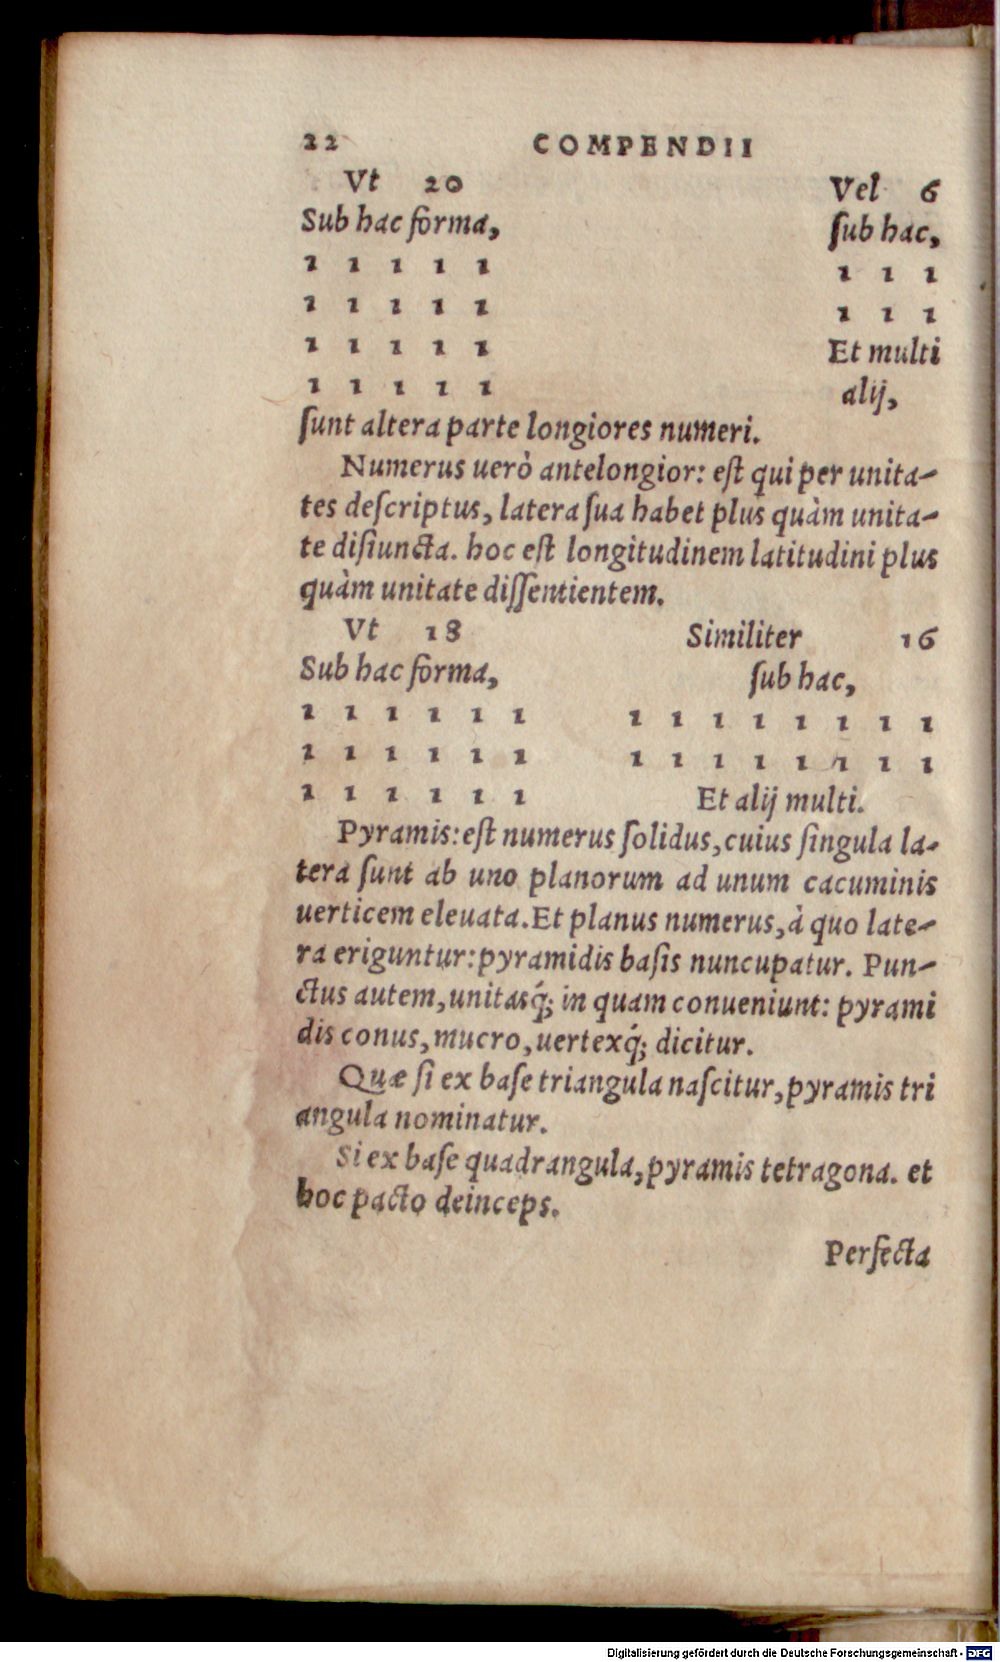 22 COMPENDII
Vt 20 Vel 6
Sub hac forma, ſub hac,
1 1 1 1 1 1 1 1
1 1 1 1 1 1 1 1
1 1 1 1 1 Et multi
1 1 1 1 1 alij,
ſunt altera parte longiores numeri.
Numerus uerò antelongior: eſt qui per unita-
tes deſcriptus, latera ſua habet plus quàm unita-
te diſiuncta. hoc eſt longitudinem latitudini plus
quàm unitate diſſentientem.
Vt 18 Similiter 16
Sub hac forma, ſub hac,
1 1 1 1 1 1 1 1 1 1 1 1 1 1
1 1 1 1 1 1 1 1 1 1 1 1 1 1
1 1 1 1 1 1 Et alij multi.
Pyramis: eſt numerus ſolidus, cuius ſingula la-
tera ſunt ab uno planorum ad unum cacuminis
uerticem eleuata. Et planus numerus, à quo late-
ra eriguntur: pyramidis baſis nuncupatur. Pun-
ctus autem, unitasq́; in quam conueniunt: pyrami
dis conus, mucro, uertexq́; dicitur.
Quæ ſi ex baſe triangula naſcitur, pyramis tri
angula nominatur.
Si ex baſe quadrangula, pyramis tetragona. et
hoc pacto deinceps.
Perfecta
Digitalisierung gefördert durch die Deutsche Forschungsgemeinschaft - DFG